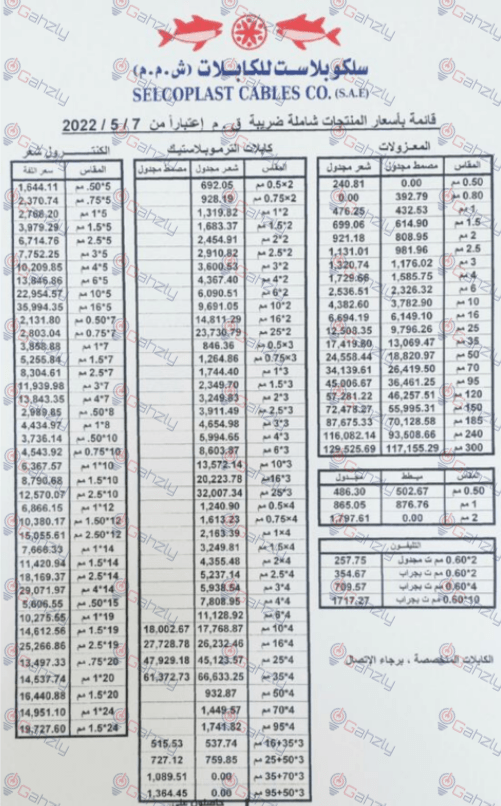 سلكوبلاست للكابلات (ش.م.م)
SELCOPLAST CABLES CO. (S.A.E)
قائمة بأسعار المنتجات شاملة ضريبة ق . م إعتباراً من 7 / 5 / 2022
المعــزولات
المقاس مصمط مجدول شعر مجدول
0.50 مم 0.00 240.81
0.80 مم 392.79 0.00
1 مم 432.53 476.25
1.5 مم 614.90 699.06
2 مم 808.95 921.18
2.5 مم 981.96 1,131.01
3 مم 1,176.02 1,320.74
4 مم 1,585.75 1,729.66
6 مم 2,326.32 2,536.51
10 مم 3,782.90 4,382.60
16 مم 6,149.10 6,694.19
25 مم 9,796.26 12,508.35
35 مم 13,069.47 17,419.80
50 مم 18,820.97 24,558.44
70 مم 26,419.50 34,139.61
95 مم 36,461.25 45,006.67
120 مم 46,257.51 57,281.22
150 مم 55,995.31 72,478.27
185 مم 70,128.58 87,675.33
240 مم 93,508.66 116,082.14
300 مم 117,155.29 129,525.69
المقاس مبطط مجدول
0.50 مم 502.67 486.30
1 مم 876.76 865.05
2 مم 0.00 1,797.61
التليفــون
2*0.60 مم ت مجدول 257.75
2*0.60 مم ت بجراب 354.67
4*0.60 مم ت بجراب 709.57
10*0.60 مم ت بجراب 1717.27
الكابلات المتخصصة ، برجاء الاتصال
كابلات الترموبلاستيك
المقاس شعر مجدول مصمط مجدول
2×0.5 مم 692.05
2×0.75 مم 928.19
2*1 مم 1,319.82
2*1.5 مم 1,683.37
2*2 مم 2,454.91
2*2.5 مم 2,910.82
2*3 مم 3,600.53
2*4 مم 4,367.40
2*6 مم 6,090.51
2*10 مم 9,691.05
2*16 مم 14,811.29
2*25 مم 23,730.79
3×0.5 مم 846.36
3×0.75 مم 1,264.86
3*1 مم 1,744.40
3*1.5 مم 2,349.70
3*2 مم 3,249.83
3*2.5 مم 3,911.49
3*3 مم 4,654.98
3*4 مم 5,994.65
3*6 مم 8,603.87
3*10 مم 13,572.14
3*16 مم 20,223.78
3*25 مم 32,007.34
4×0.5 مم 1,240.90
4×0.75 مم 1,613.23
4×1 مم 2,163.39
4×1.5 مم 3,249.81
4×2 مم 4,355.48
4*2.5 مم 5,237.14
4*3 مم 5,938.54
4*4 مم 7,808.95
4*6 مم 11,128.92
4*10 مم 17,768.87 18,002.67
4*16 مم 26,232.46 27,728.78
4*25 مم 45,123.57 47,929.18
4*35 مم 66,633.25 61,372.73
4*50 مم 932.87
4*70 مم 1,449.57
4*95 مم 1,741.82
3*35+16 مم 537.74 515.53
3*50+25 مم 759.85 727.12
3*70+35 مم 0.00 1,089.51
3*95+50 مم 0.00 1,364.45
الكنتــــرول شعر
المقاس سعر اللفة
5*50. مم 1,644.11
5*75. مم 2,370.74
5*1 مم 2,768.20
5*1.5 مم 3,979.29
5*2.5 مم 6,714.76
5*3 مم 7,752.25
5*4 مم 10,209.85
5*6 مم 13,846.86
5*10 مم 22,954.57
5*16 مم 35,994.35
7*0.50 مم 2,131.80
7*0.75 مم 2,803.04
7*1 مم 3,858.88
7*1.5 مم 5,255.84
7*2.5 مم 8,304.61
7*3 مم 11,939.98
7*4 مم 13,843.35
8*50. مم 2,989.85
8*1 مم 4,434.97
10*50. مم 3,736.14
10*0.75 مم 4,543.92
10*1 مم 6,367.57
10*1.5 مم 8,790.68
10*2.5 مم 12,570.07
12*1 مم 6,866.15
12*1.50 مم 10,380.17
12*2.50 مم 15,055.61
14*1 مم 7,666.33
14*1.5 مم 11,420.94
14*2.5 مم 18,169.37
14*4 مم 29,071.97
15*50. مم 5,606.55
19*1 مم 10,275.65
19*1.5 مم 14,612.56
19*2.5 مم 25,266.86
20*75. مم 13,497.33
20*1 مم 14,537.74
20*1.5 مم 16,440.88
24*1 مم 14,951.10
24*1.5 مم 19,727.60
Gahzly